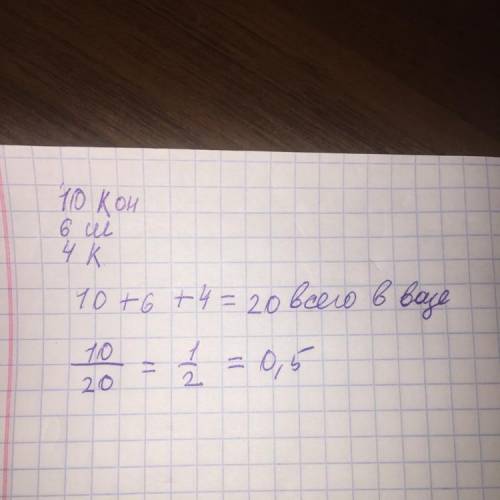 10 кон
6 ш
4 к
10 + 6 + 4 = 20 всего в вазе
10/20 = 1/2 = 0,5